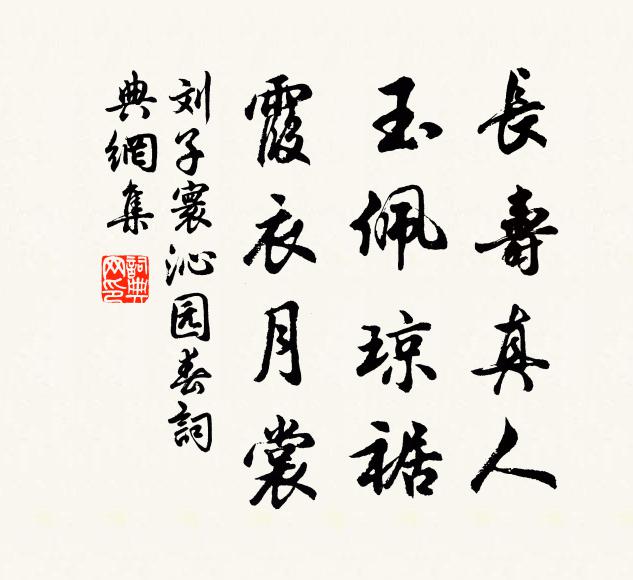 長壽真人
玉佩琼裾
霞衣月裳
刘子寰沁园春詞
典網集
詞典網印